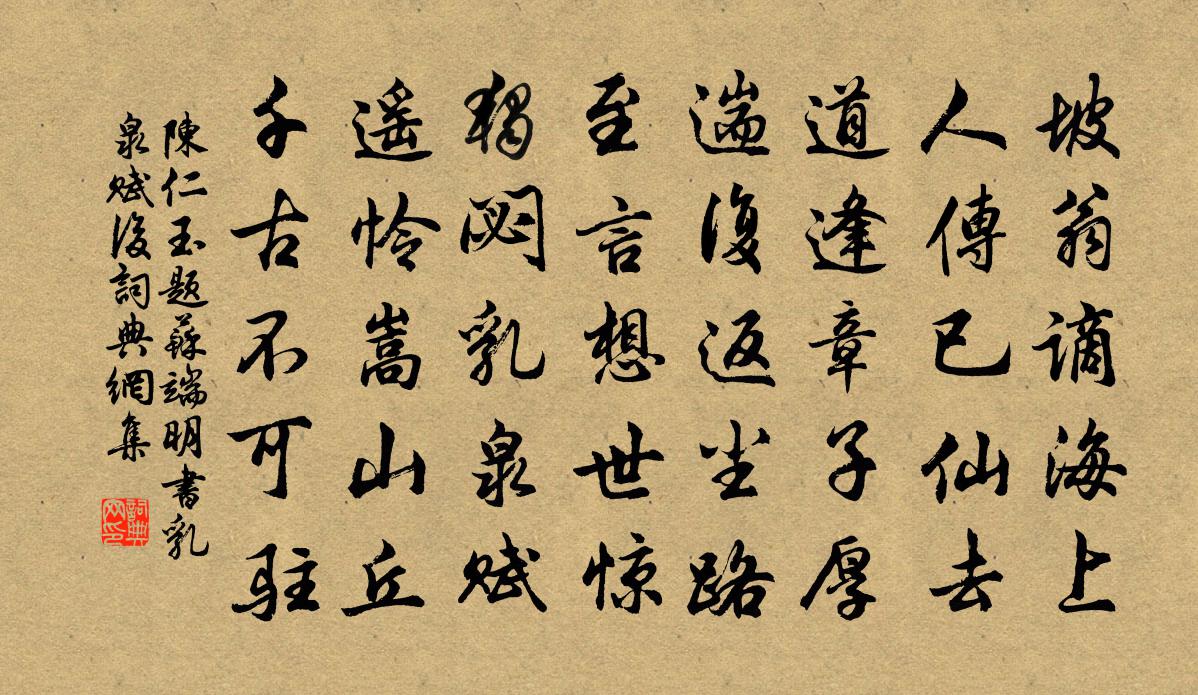 坡翁谪海上
人傳已仙去
道逢章子厚
遄復返尘路
至言想世惊
獨閟乳泉赋
遥怜嵩山丘
千古不可駐
陳仁玉题蘇端明書乳
泉赋後詞典網集
詞典网印